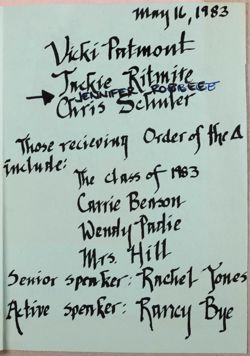 May 16, 1983
Vicki Patmont
Jackie Ritmire
JENNIFER
Chris Schuler
Those recieving Order of the Δ
include:
The class of 1983
Carrie Benson
Wendy Padie
Mrs. Hill
Senior speaker: Rachel Jones
Active speaker: Rancy Bye